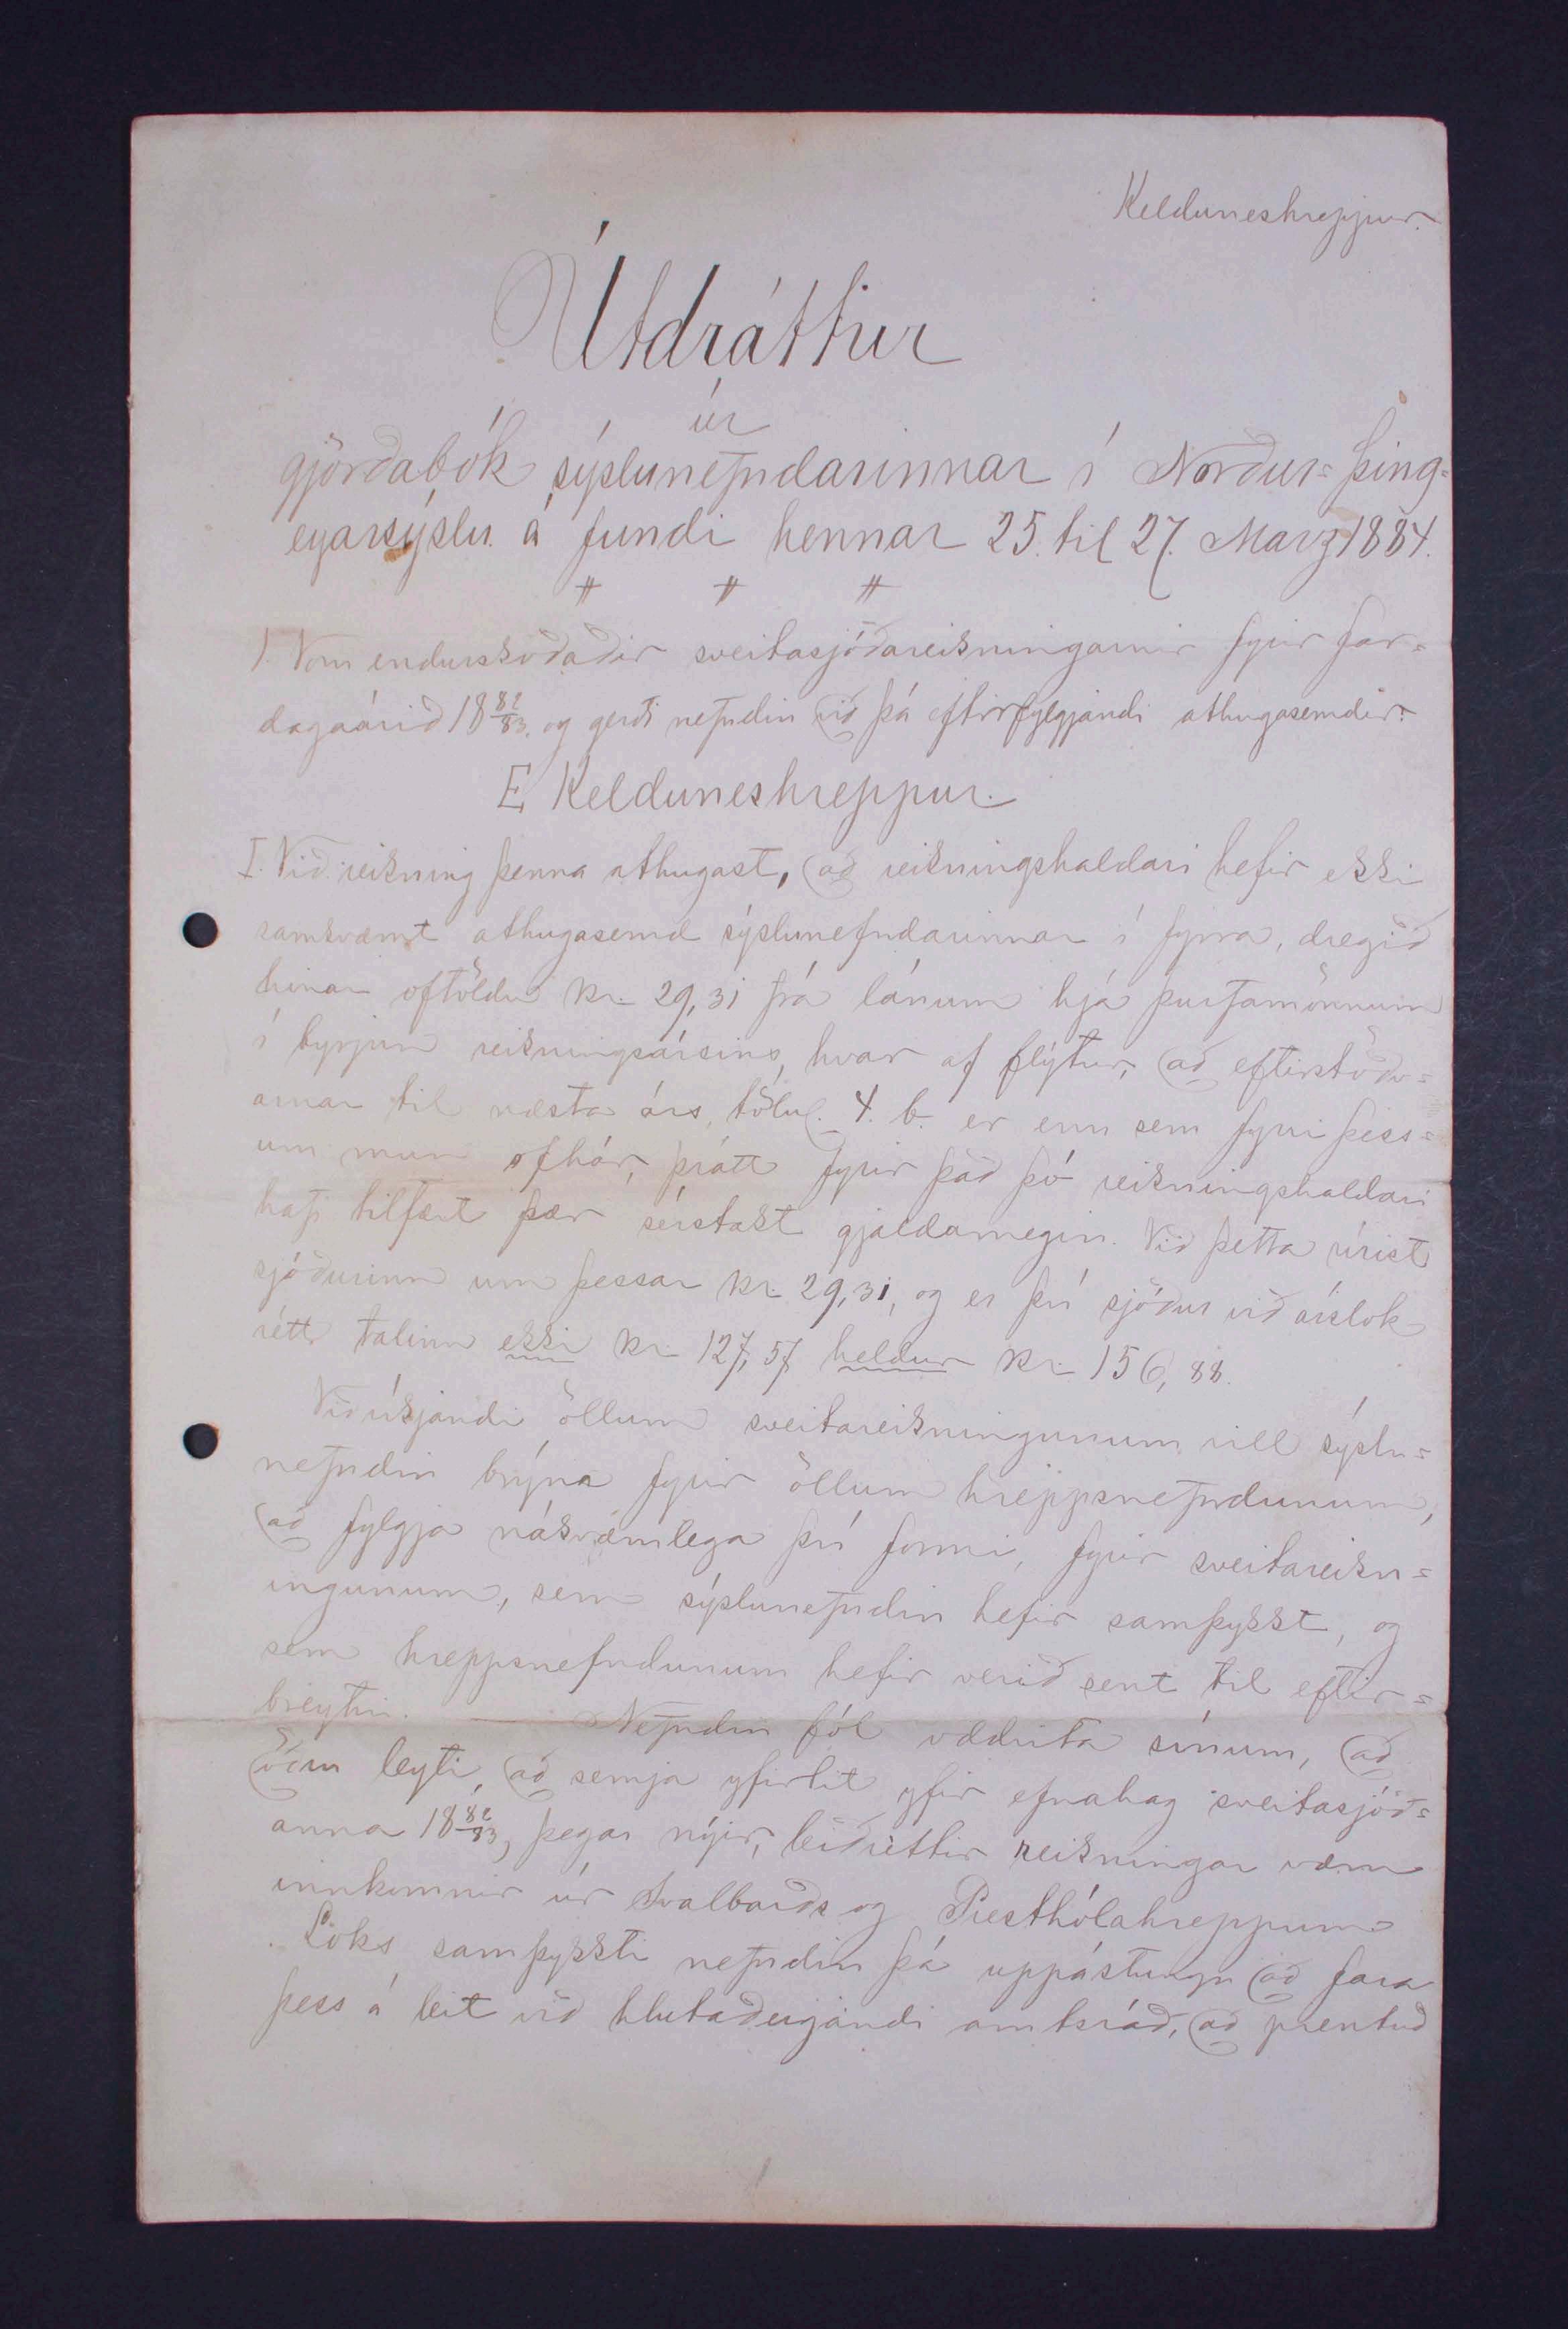 Kelduneshreppur.
Útdráttur
úr
gjörðabók sýslunefndarinnar í Norður-Þing-
eyarsýslu á fundi hennar 25. til 27. Marz 1884.
〃 〃 〃
1. Voru endurskoðaðir sveitasjóðareikningarnir fyrir far-
dagaárið 18 82/83. og gerði nefndin við þá eftirfylgjandi athugasemdir:
E Kelduneshreppur.
I. Við reikning þenna athugast, að reikningshaldari hefir ekki
samkvæmt athugasemd sýslunefndarinnar í fyrra, dregið
hinar oftöldu Kr. 29,31 frá lánum hjá þurfamönnum
í byrjun reikningsársins, hvar af flýtur, að eftirstöðv-
arnar til næsta árs, tölul. 4. b. er enn sem fyrri þess-
um mun ofhár, þrátt fyrir það þó reikningshaldari
hafi tilfært þær sérstakt gjaldamegin. Við þetta rírist
sjóðurinn um þessar Kr. 29,31, og er því sjóður við árslok
rétt talinn ekki Kr. 127,57 heldur Kr. 156,88.
Viðvíkjandi öllum sveitareikningunum vill sýslu-
nefndin brýna fyrir öllum hreppsnefndunum,
að fylgja nákvæmlega því formi, fyrir sveitareikn-
ingunum, sem sýslunefndin hefir samþykkt, og
sem hreppsnefndunum hefir verið sent til eftir-
breytni. Nefndin fól oddvita sínum, að
öðru leyti, að semja yfirlit yfir efnahag sveitasjóð-
anna 18 82/83, þegar nýir, leiðréttir reikningar væru
innkomnir úr Svalbarðs og Presthólahreppum
Loks samþykkti nefndin þá uppástungu að fara
þess á leit við hlutaðeigandi amtsráð, að prentuð